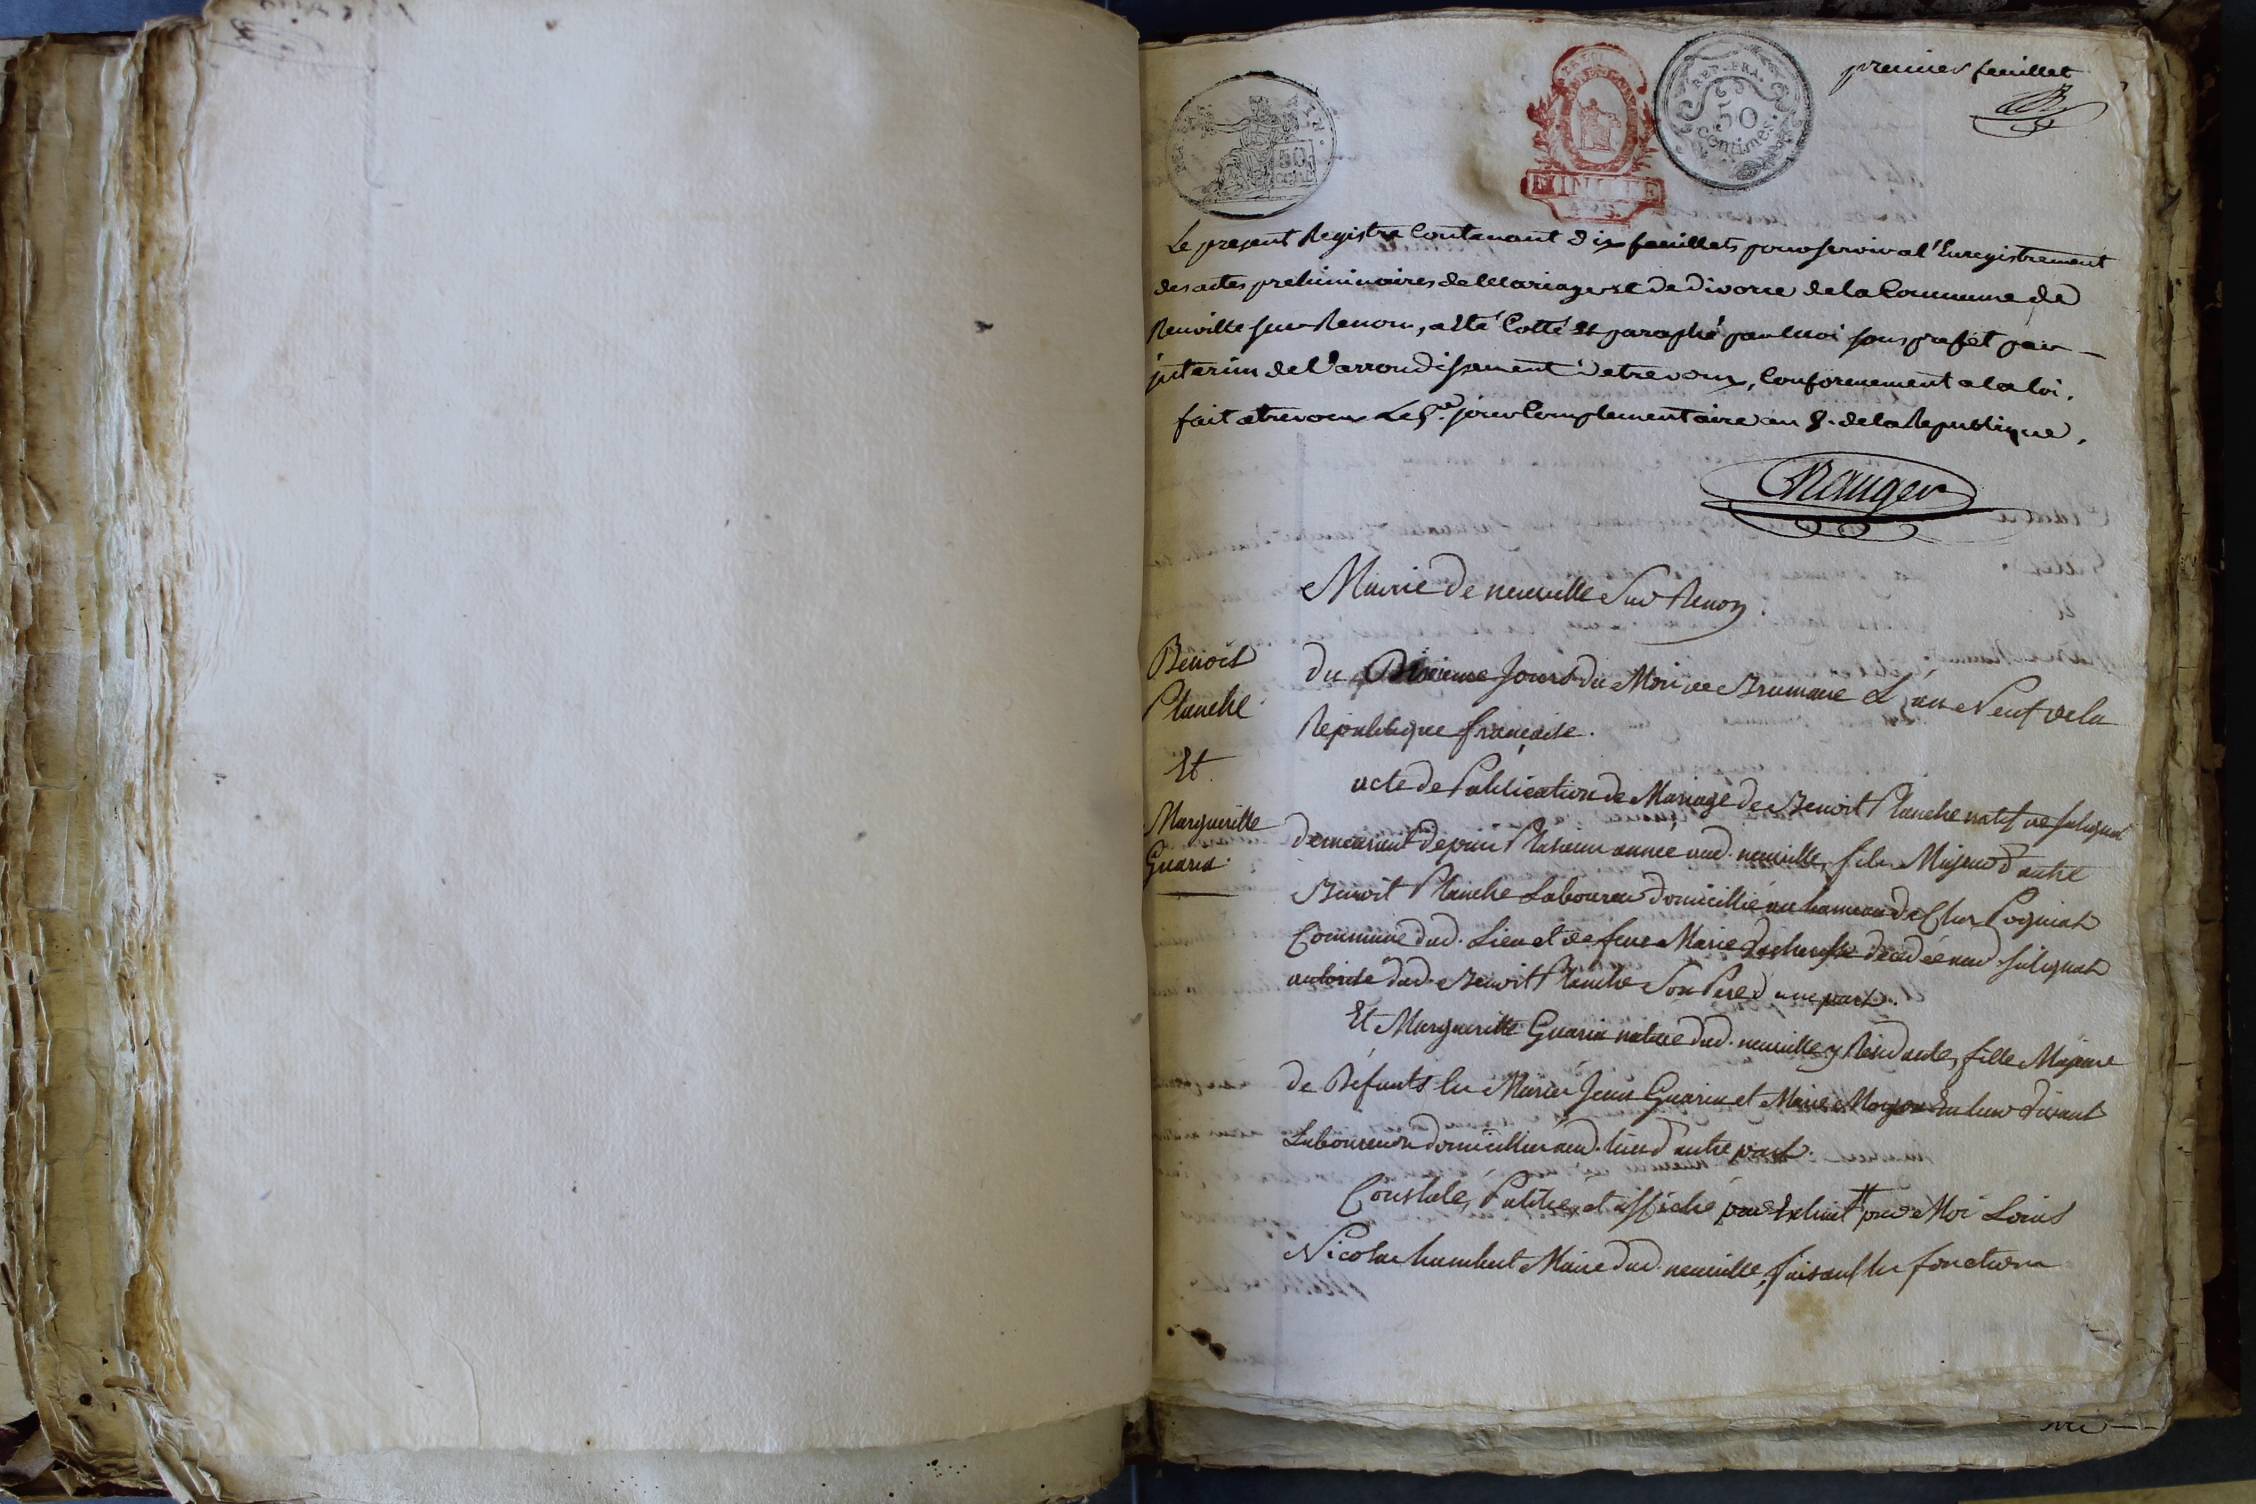 premier feuillet
REP. FRA.
50
Centimes.
50
CENT.
Le present Registre Contenant dix feuillets pour servir a l'Enregistrement
des actes preliminaires de Mariage et de divorce de la Commune de
Neuville sur Renom, a été Cotté et paraphé par Moi sous prefet par
interim de l'arrondissement de trevoux, Conformement a la loi.
fait a trevoux Le 5e. jour Complementaire an 8. de la Republique.
Mairie de neuville Sur Renon
Benoit
Planche
Et
Margueritte
Guarin
du Jour du Mois de Brumaire L'an Neuf de la
Republique francaise.
acte de Publication de Mariage de Benoit Planche natif de
demeurant depuis Plusieurs année aud. neuville, fils Majeur d'autre
Benoit Planche Laboureur domicillié au hameau de
Commune dud. Lieu et de feue Marie décédée aud. Sulignat
autorisé dud. Benoit Planche Son Pere d'une part.
Et Margueritte Guarin native dud. neuville y Résidante, fille Majeure
de Défunts les Mariés Jean Guarin et Marie Moyon En leur vivant
Laboureurs domicilliés aud. lieu d'autre part.
Constaté, Publié, et affiché par Extrait par Moi Louis
Nicolas humbert Maire dud. neuville, faisant les fonctions